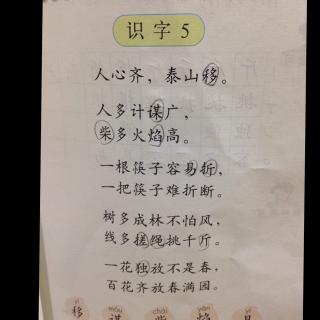 识字5
人心齐，泰山移。
人多计谋广，
柴多火焰高。
一根筷子容易折，
一把筷子难折断。
树多成林不怕风，
线多搓绳挑千斤。
一花独放不是春，
百花齐放春满园。
yí móu chái yàn yì
移 谋 柴 焰 易